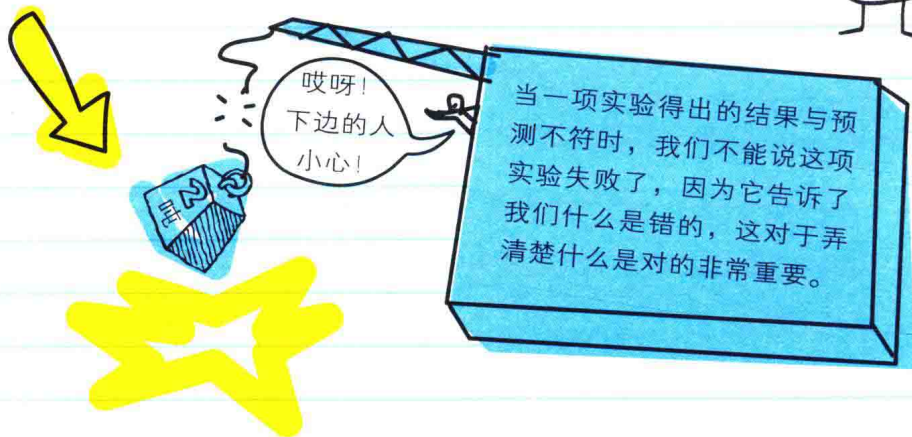 哎呀！
下边的人
小心！
当一项实验得出的结果与预
测不符时，我们不能说这项
实验失败了，因为它告诉了
我们什么是错的，这对于弄
清楚什么是对的非常重要。
2
吨